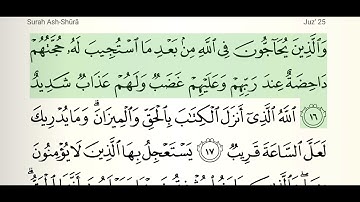 Surah Ash-Shūrā Juz' 25
وَٱلَّذِينَ يُحَآجُّونَ فِى ٱللَّهِ مِنۢ بَعْدِ مَا ٱسْتُجِيبَ لَهُۥ حُجَّتُهُمْ
دَاحِضَةٌ عِندَ رَبِّهِمْ وَعَلَيْهِمْ غَضَبٌ وَلَهُمْ عَذَابٌ شَدِيدٌ
١٦ ٱللَّهُ ٱلَّذِىٓ أَنزَلَ ٱلْكِتَـٰبَ بِٱلْحَقِّ وَٱلْمِيزَانَ ۗ وَمَا يُدْرِيكَ
لَعَلَّ ٱلسَّاعَةَ قَرِيبٌ ١٧ يَسْتَعْجِلُ بِهَا ٱلَّذِينَ لَا يُؤْمِنُونَ